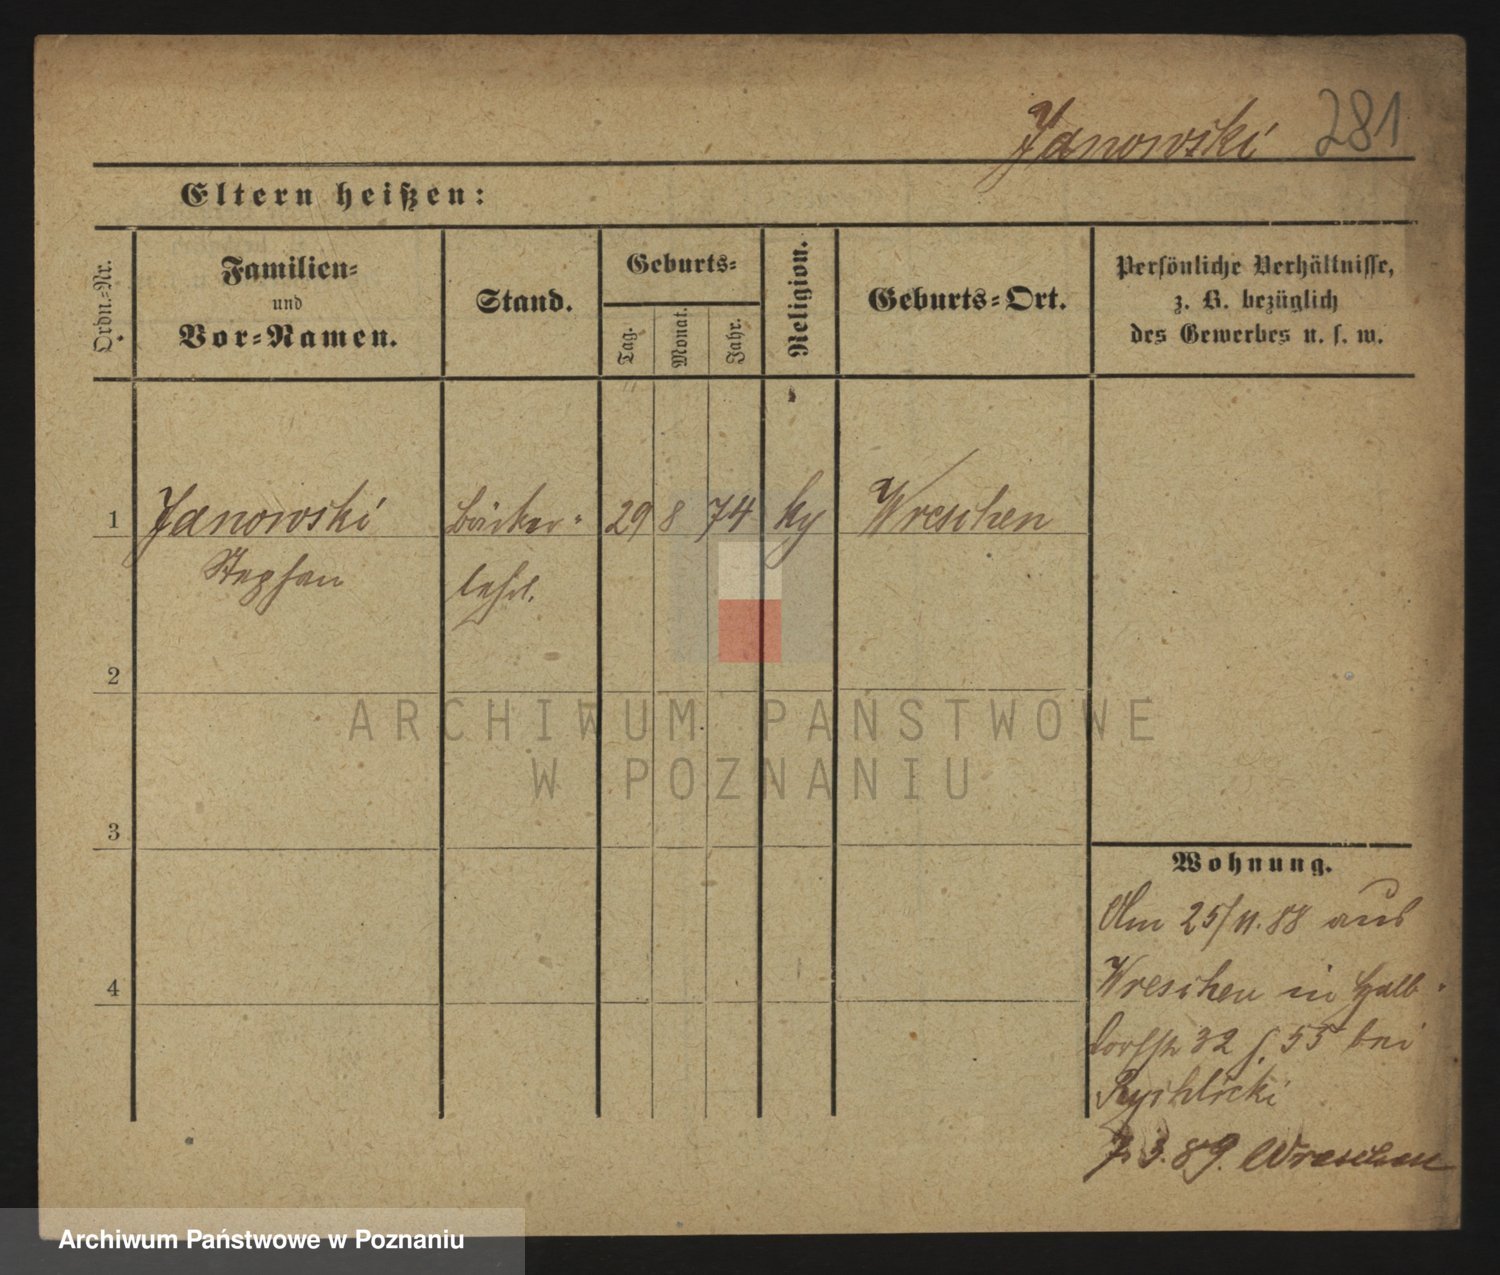 Janowski 281
Eltern heißen:
Ordn.-Nr.
Familien-
und
Vor-Namen.
Stand.
Geburts-
Tag.
Monat.
Jahr.
Religion.
Geburts-Ort.
Persönliche Verhältnisse,
z. B. bezüglich
des Gewerbes u. s. w.
1 Janowski Bäcker- 29 8 74 ky Wreschen
Stephan lehrl.
2
3
4
Wohnung.
Am 25/11.88 aus
Wreschen in Halb-
dorfstr 32 f. 55 bei
Rychlicki
7.3.89. Wreschen
ARCHIWUM PAŃSTWOWE
W POZNANIU
Archiwum Państwowe w Poznaniu